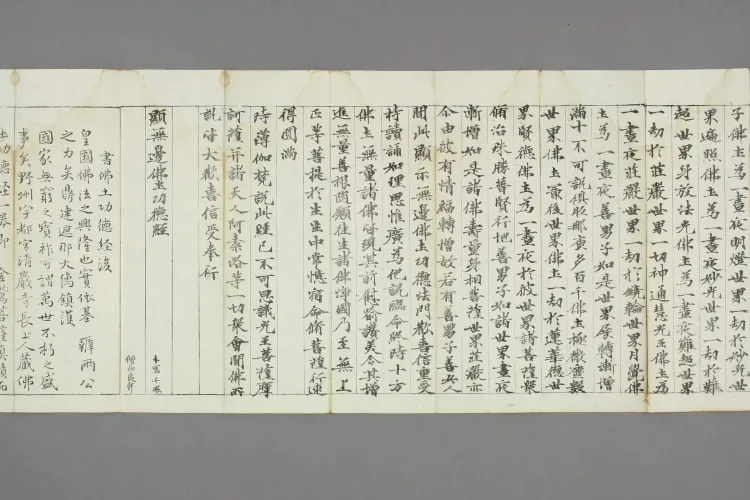 子佛土為一晝夜明燈世界一劫於妙光世
界遍照佛土為一晝夜妙光世界一劫於難
超世界身放法光佛土為一晝夜難超世界
一劫於莊嚴世界一切神通慧光王佛土為
一晝夜莊嚴世界一劫於鏡輪世界月覺佛
土為一晝夜善男子如是世界展轉漸增
滿十不可說俱胝那庾多百千佛土極微塵數
世界佛土最後世界佛土一劫於蓮華德世
界賢德佛土為一晝夜於彼世界諸菩薩眾
脩治殊勝普賢行地善男子如諸世界晝夜
漸增如是諸佛壽量身相菩薩世界莊嚴亦
尒由彼有情福轉增故若有善男子善女人
聞此顯示無邊佛土功德法門歡喜信重受
持讀誦如理思惟廣為他說臨命終時十方
佛土無量諸佛皆現其前慰喻讚美令其增
進無量善根隨願往生諸佛淨國乃至無上
正等菩提於生生中常憶宿命脩菩薩行速
得圓滿
時薄伽梵說此經已不可思議光王菩薩摩
訶薩并諸天人阿素洛等一切眾會聞佛所
說皆大歡喜信受奉行
顯無邊佛土功德經
良弁
書佛土功德經後
皇國佛法之興隆也實依基辯兩公
之力矣鼎建遮那大像鎮護
國家無窮之寶祚可謂萬世不朽之盛
事矣野州宇都宮清巖寺長上人蔵佛
土功德經一卷即金鷲菩薩真蹟而